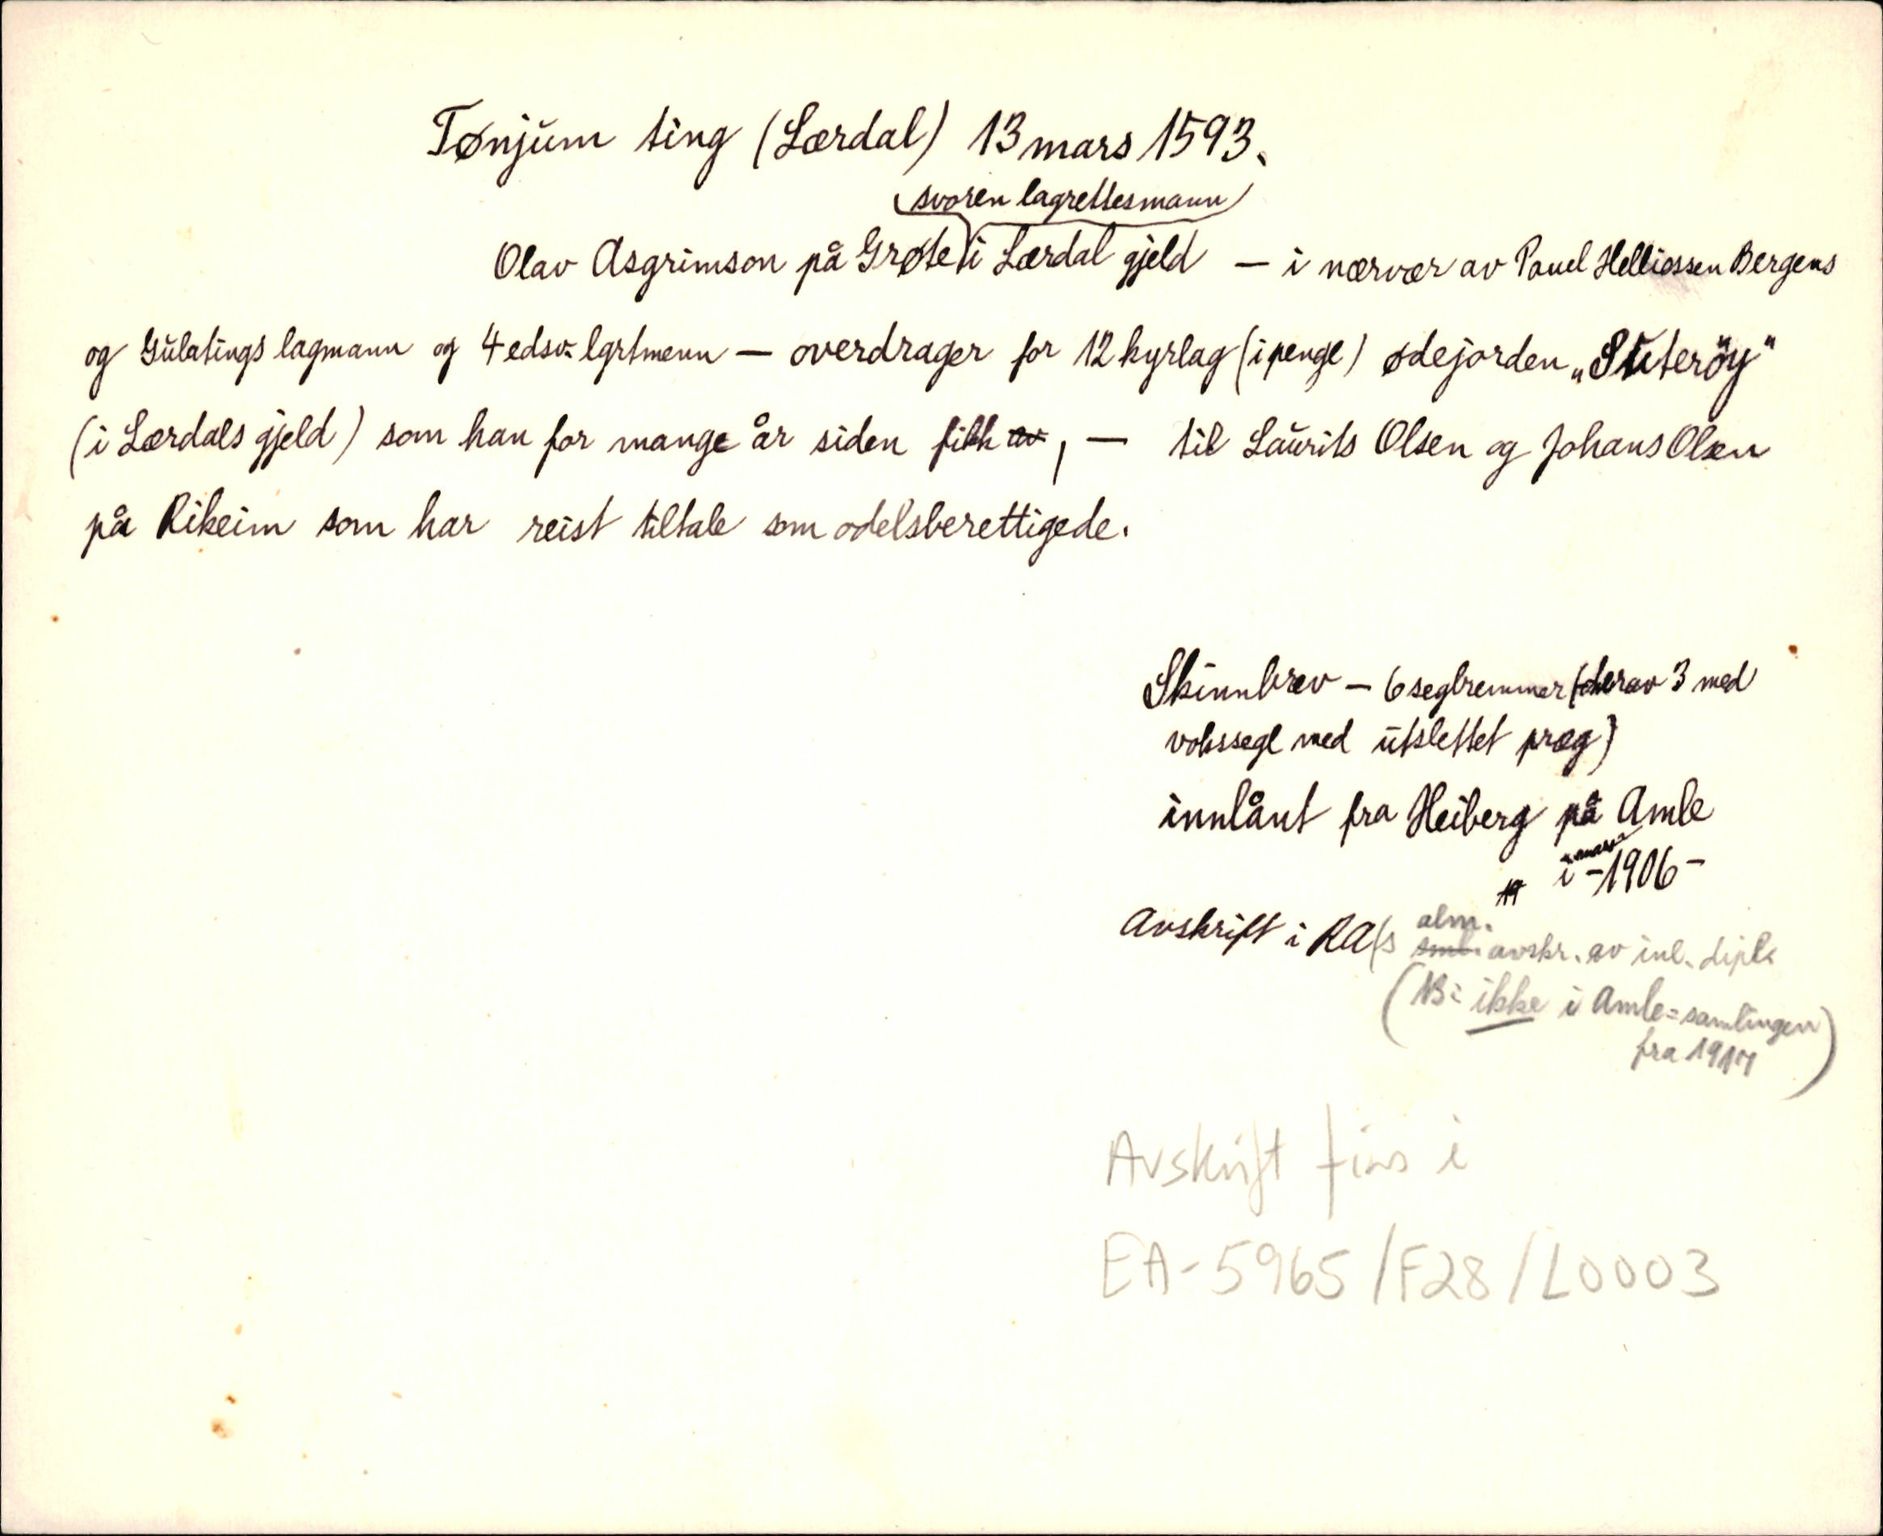 Tønjum ting (Lærdal) 13 mars 1593.
svoren lagrettesmann
Olav Asgrimson på Grøte i Lærdal gjeld — i nærvær av Pauel Helliessen Bergens
og Gulatings lagmann og 4 edsv. lgrtmenn — overdrager for 12 kyrlag (i penge) ødejorden „Suterøy"
(i Lærdals gjeld) som han for mange år siden fikk av, — til Laurits Olsen og Johans Olsen
på Rikeim som har reist tiltale som odelsberettigede.
Skinnbrev — 6 seglremmer (derav 3 med
vokssegl med utslettet præg)
innlånt fra Heiberg på Amle
i mars -1906-
Avskrift i RA's alm. avskr. av inl. dipl.
(NB: ikke i Amle=samlingen
fra 1917)
Avskrift fins i
EA-5965/F28/L0003